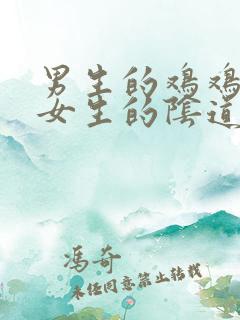 男生的鸡鸡
女生的陰道
冯奇
未经同意禁止转载